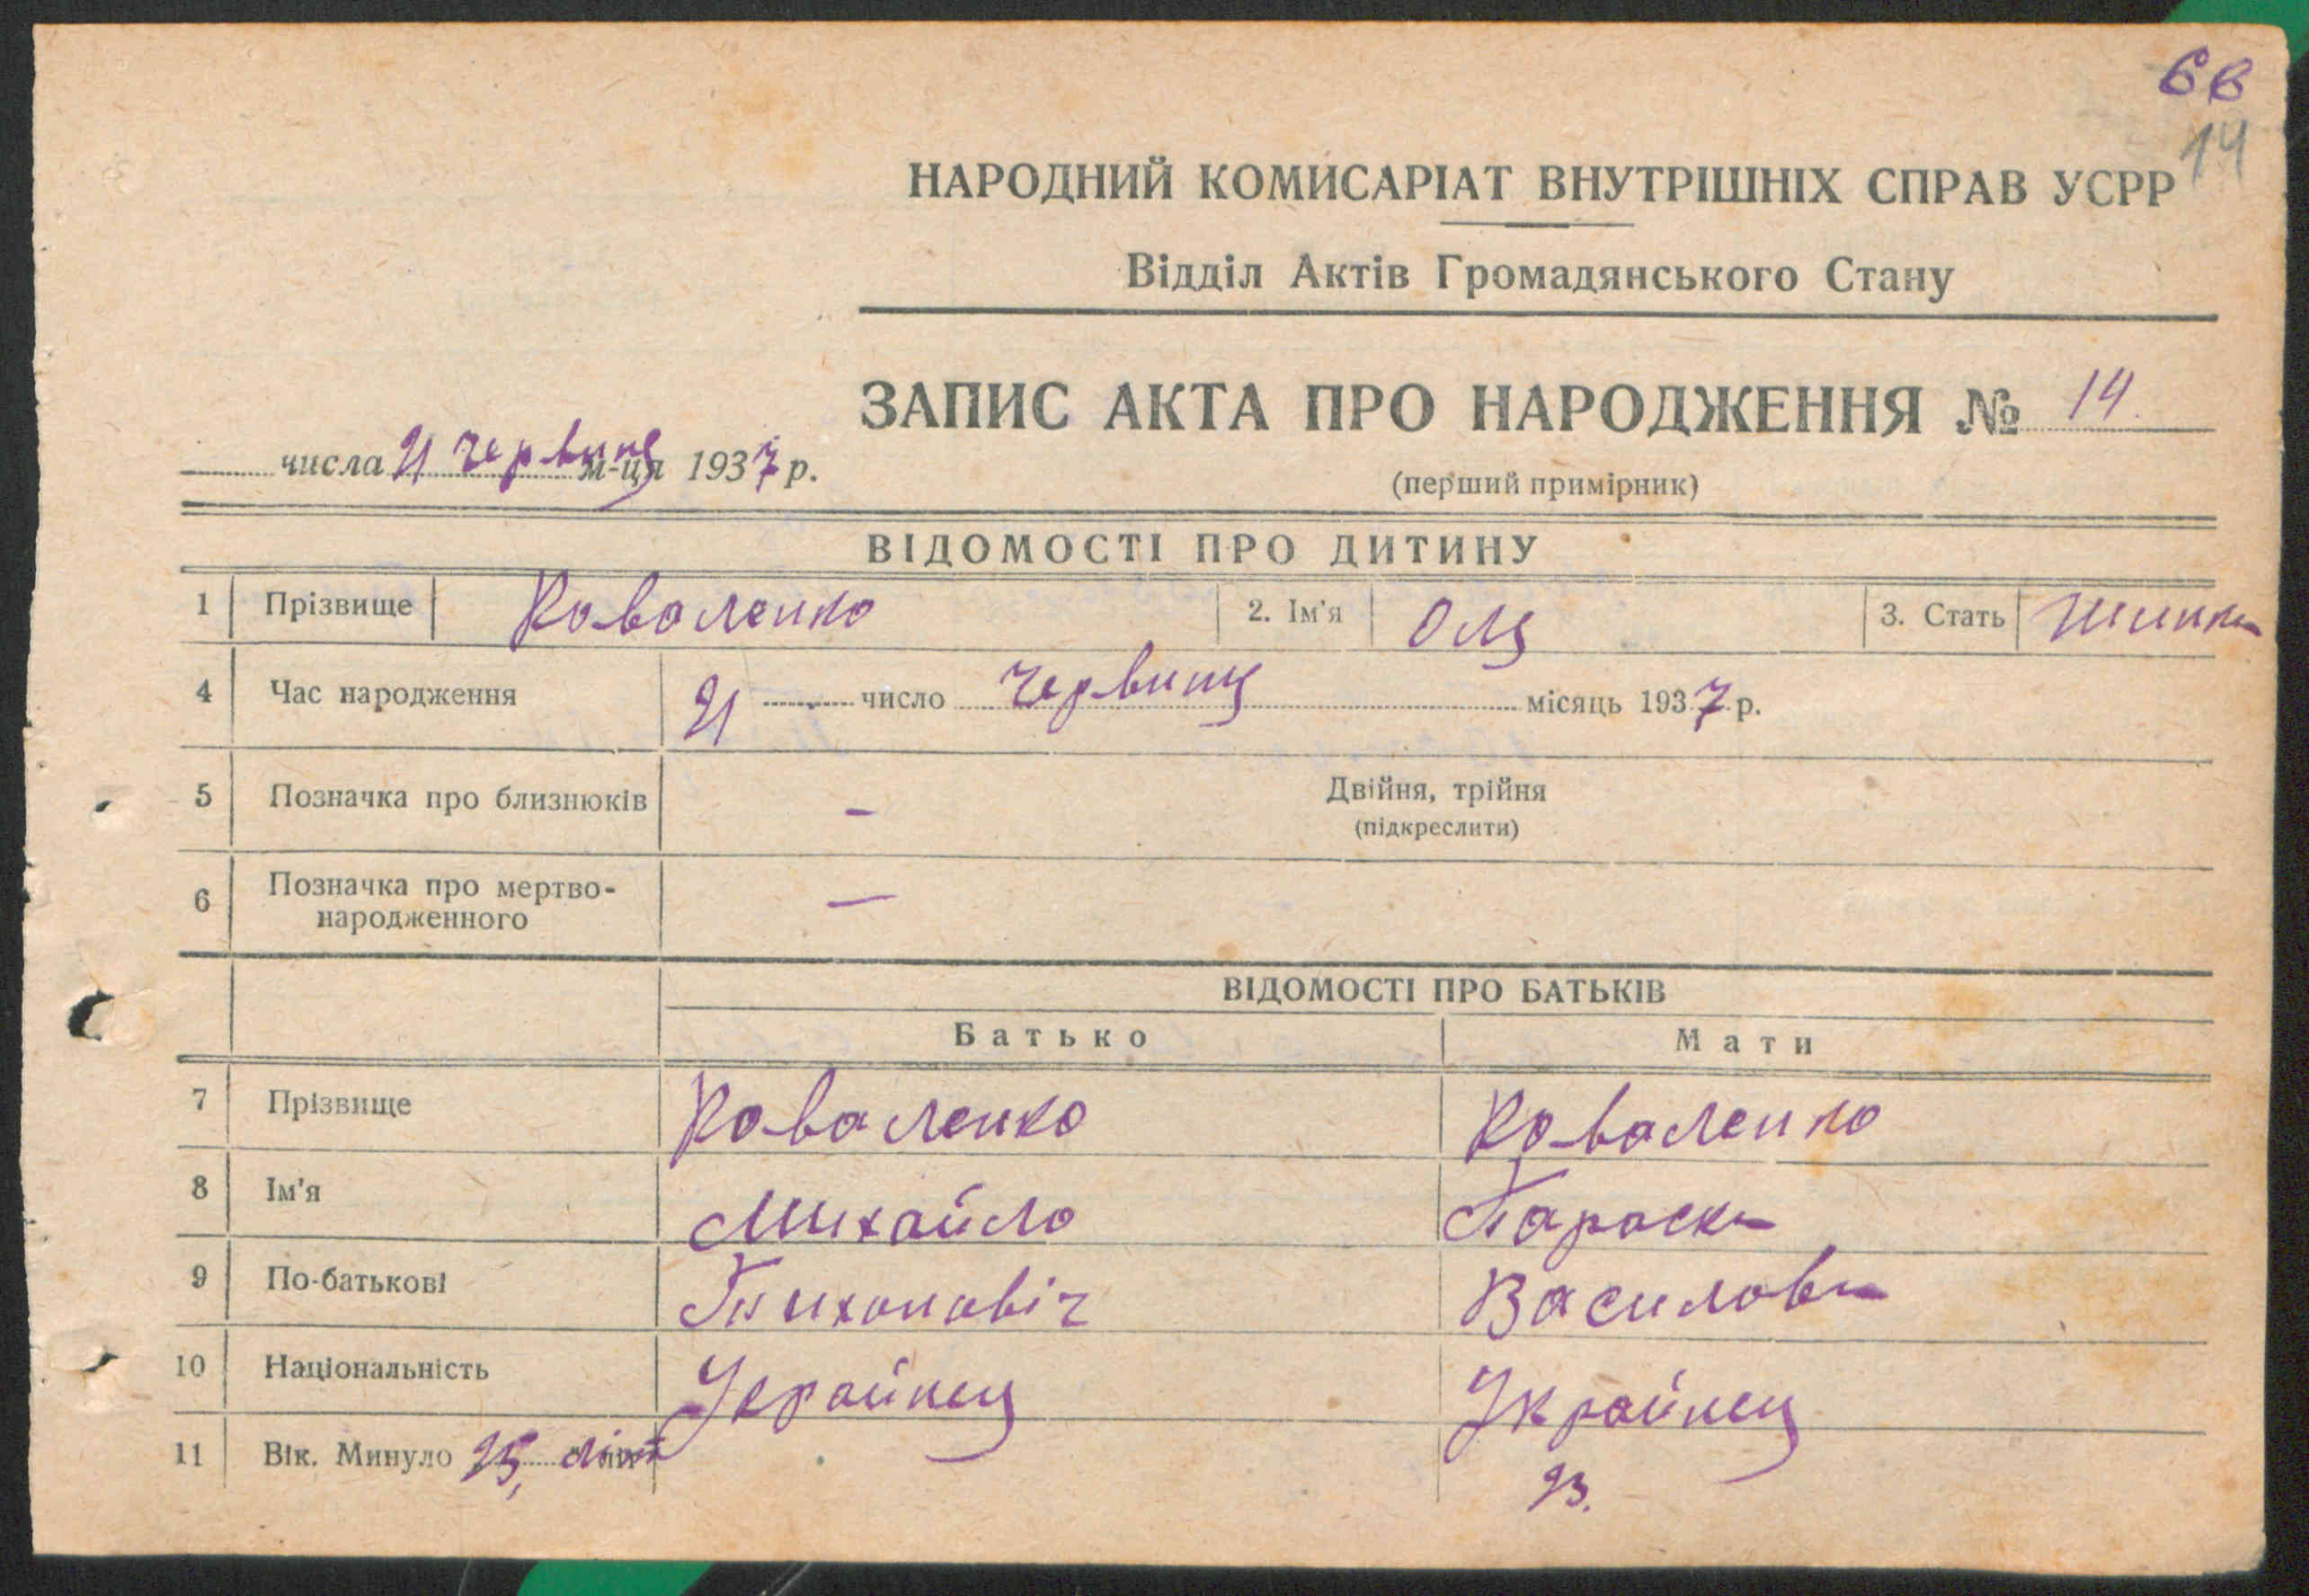 6в
14
НАРОДНИЙ КОМИСАРІАТ ВНУТРІШНІХ СПРАВ УСРР
Відділ Актів Громадянського Стану
ЗАПИС АКТА ПРО НАРОДЖЕННЯ № 14
числа 21 червиця м-ця 1937 р.
(перший примірник)
ВІДОМОСТІ ПРО ДИТИНУ
1 Прізвище Коваленко 2. Ім'я Оля 3. Стать
4 Час народження 21 число червиця місяць 1937 р.
5 Позначка про близнюків - Двійня, трійня
(підкреслити)
6 Позначка про мертво-
народженного —
ВІДОМОСТІ ПРО БАТЬКІВ
Батько Мати
7 Прізвище Коваленко Коваленко
8 Ім'я Михайло Параска
9 По-батькові Тихоновіч Василовн
10 Національність Українец Українец
11 Вік. Минуло 25, літ 23.